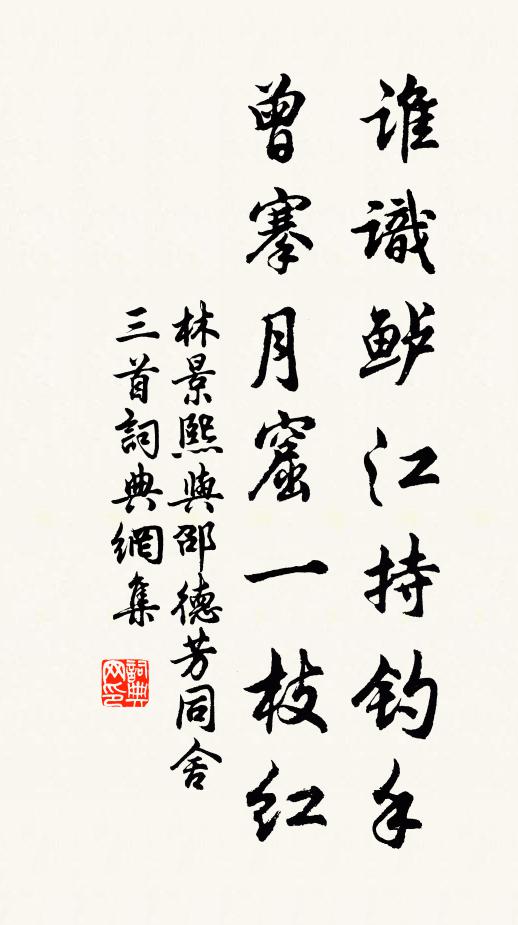 谁識鲈江持钓手
曾搴月窟一枝红
林景熙與邵德芳同舍
三首詞典網集
詞典网印